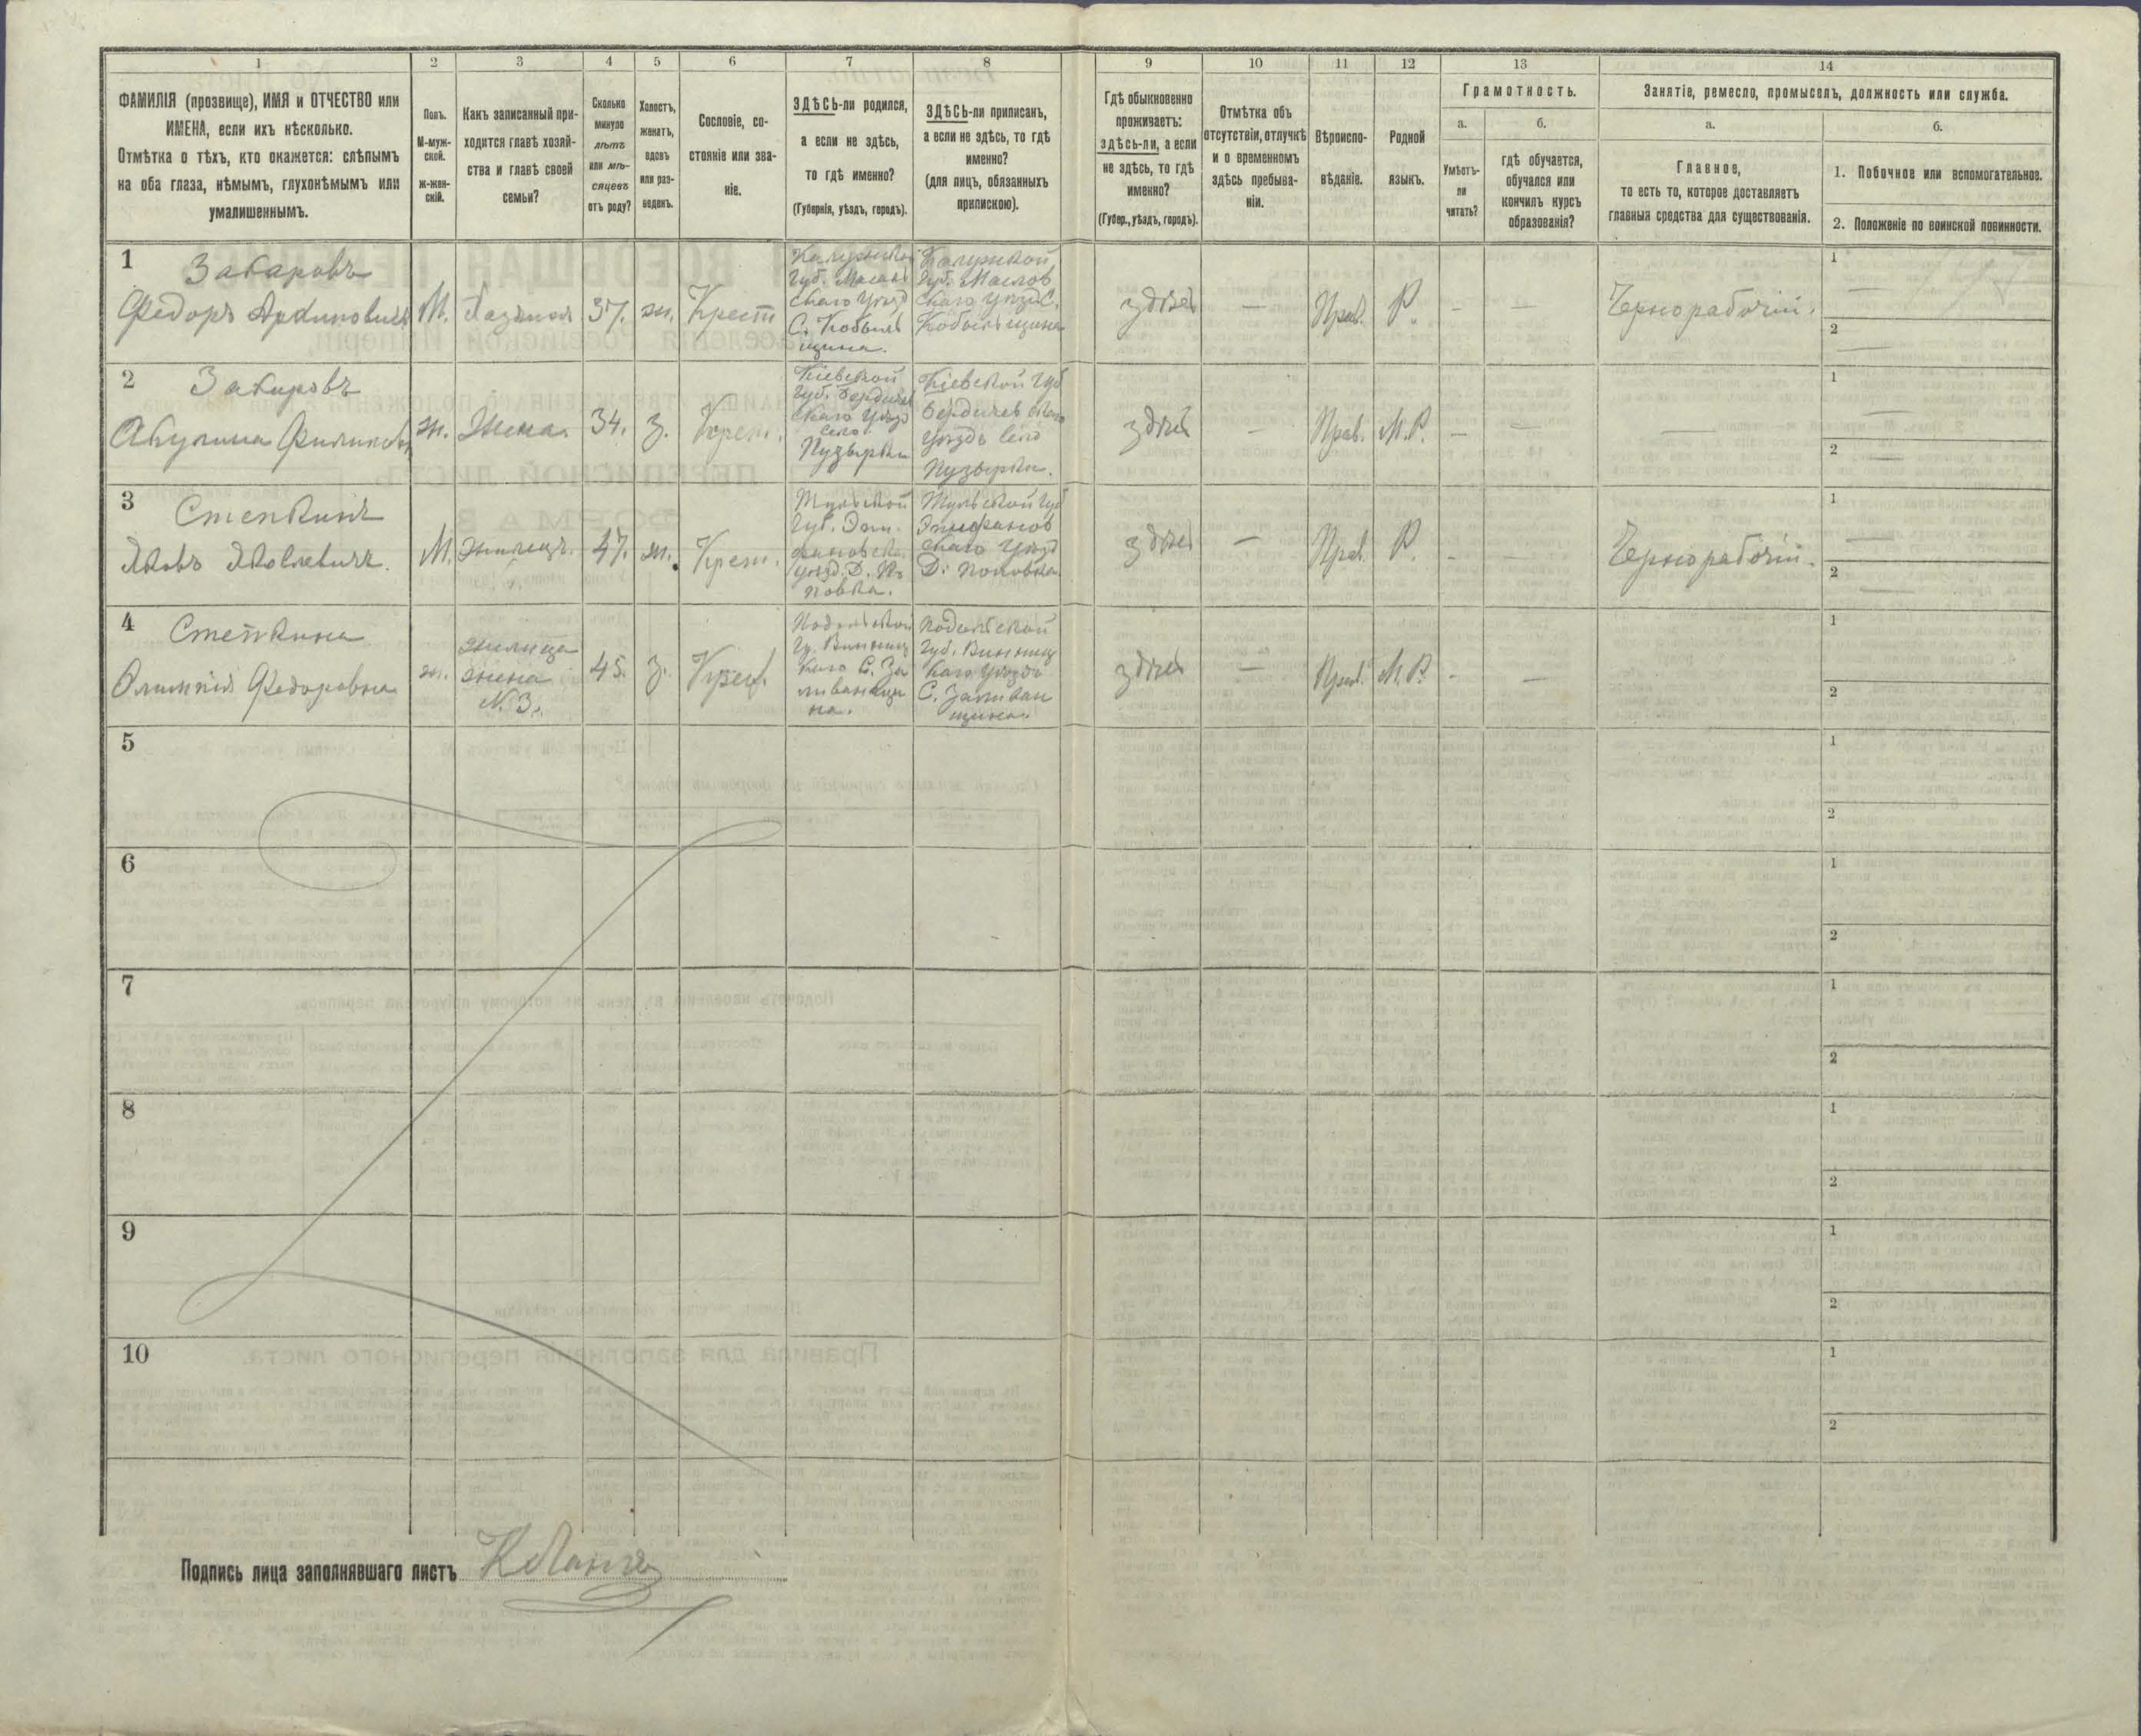 1
2
3
4
5
6
7
8
9
10
11
12
13
14
ФАМИЛІЯ (прозвище), ИМЯ и ОТЧЕСТВО или
ИМЕНА, если ихъ нѣсколько.
Отмѣтка о тѣхъ, кто окажется: слѣпымъ
на оба глаза, нѣмымъ, глухонѣмымъ или
умалишеннымъ.
Полъ.
М-муж-
ской.
ж-жен-
скій.
Какъ записанный при-
ходится главѣ хозяй-
ства и главѣ своей
семьи?
Сколько
минуло
лѣтъ
или мѣ-
сяцевъ
отъ роду?
Холостъ,
женатъ,
вдовъ
или раз-
веденъ.
Сословіе, со-
стояніе или зва-
ніе.
ЗДѢСЬ-ли родился,
а если не здѣсь,
то гдѣ именно?
(Губернія, уѣздъ, городъ).
ЗДѢСЬ-ли приписанъ,
а если не здѣсь, то гдѣ
именно?
(для лицъ, обязанныхъ
припискою).
Гдѣ обыкновенно
проживаетъ:
здѣсь-ли, а если
не здѣсь, то гдѣ
именно?
(Губер., уѣздъ, городъ).
Отмѣтка объ
отсутствіи, отлучкѣ
и о временномъ
здѣсь пребыва-
ніи.
Вѣроиспо-
вѣданіе.
Родной
языкъ.
Грамотность.
а.
Умѣетъ-
ли
читать?
б.
гдѣ обучается,
обучался или
кончилъ курсъ
образованія?
Занятіе, ремесло, промыселъ, должность или служба.
а.
Главное,
то есть то, которое доставляетъ
главныя средства для существованія.
б.
1. Побочное или вспомогательное.
2. Положеніе по воинской повинности.
1
Захаровъ
Федоръ
М.
Хозяинъ
37.
ж.
Крест
Калужской
Губ.
скаго Уѣзд
С. Кобыль
щина.
Калужской
Губ.
скаго Уѣзд С.
Кобыльщина
здѣсь
—
Прав.
Р.
—
—
Чернорабочій.
1
—
2
—
2
Захаровъ
Акулина
ж.
Жена
34.
з.
Крест.
Кіевской
Губ. Бердичев
скаго Уѣзд
село
Пузырьки
Кіевской Губ
Бердичев скаго
Уѣздъ село
Пузырьки.
здѣсь
—
Прав.
М.Р.
—
—
—
1
—
2
—
3
Степкинъ
Яковъ Яковлевичъ.
М.
жилецъ.
47.
ж.
Крест.
Тульской
Губ. Епи-
фановска
уѣзд. Д. По
повка.
Тульской Губ
Епифанов
скаго Уѣзд
Д. Поповка
здѣсь
—
Прав.
Р.
—
—
Чернорабочій.
1
—
2
—
4
Степкина
Олимпія Федоровна
ж.
жилица
жена
N. 3.
45.
з.
Крест.
Подольской
Гу. Винниц
каго С. За
ливанщи
на.
Подольской
Губ. Винниц
каго Уѣздъ
С. Заливан
щина.
здѣсь
—
Прав.
М.Р.
-
—
1
2
5
1
2
6
1
2
7
1
2
8
1
2
9
1
2
10
1
2
Подпись лица заполнявшаго листъ